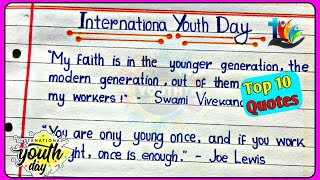 Internationa Youth Day
"My faith is in the younger generation, the
modern generation, out of them
my workers!" - Swami Vivekan
Top 10
Quotes
"You are only young once, and if you work
ght, once is enough." - Joe Lewis
INTERNATIONAL
youth
day